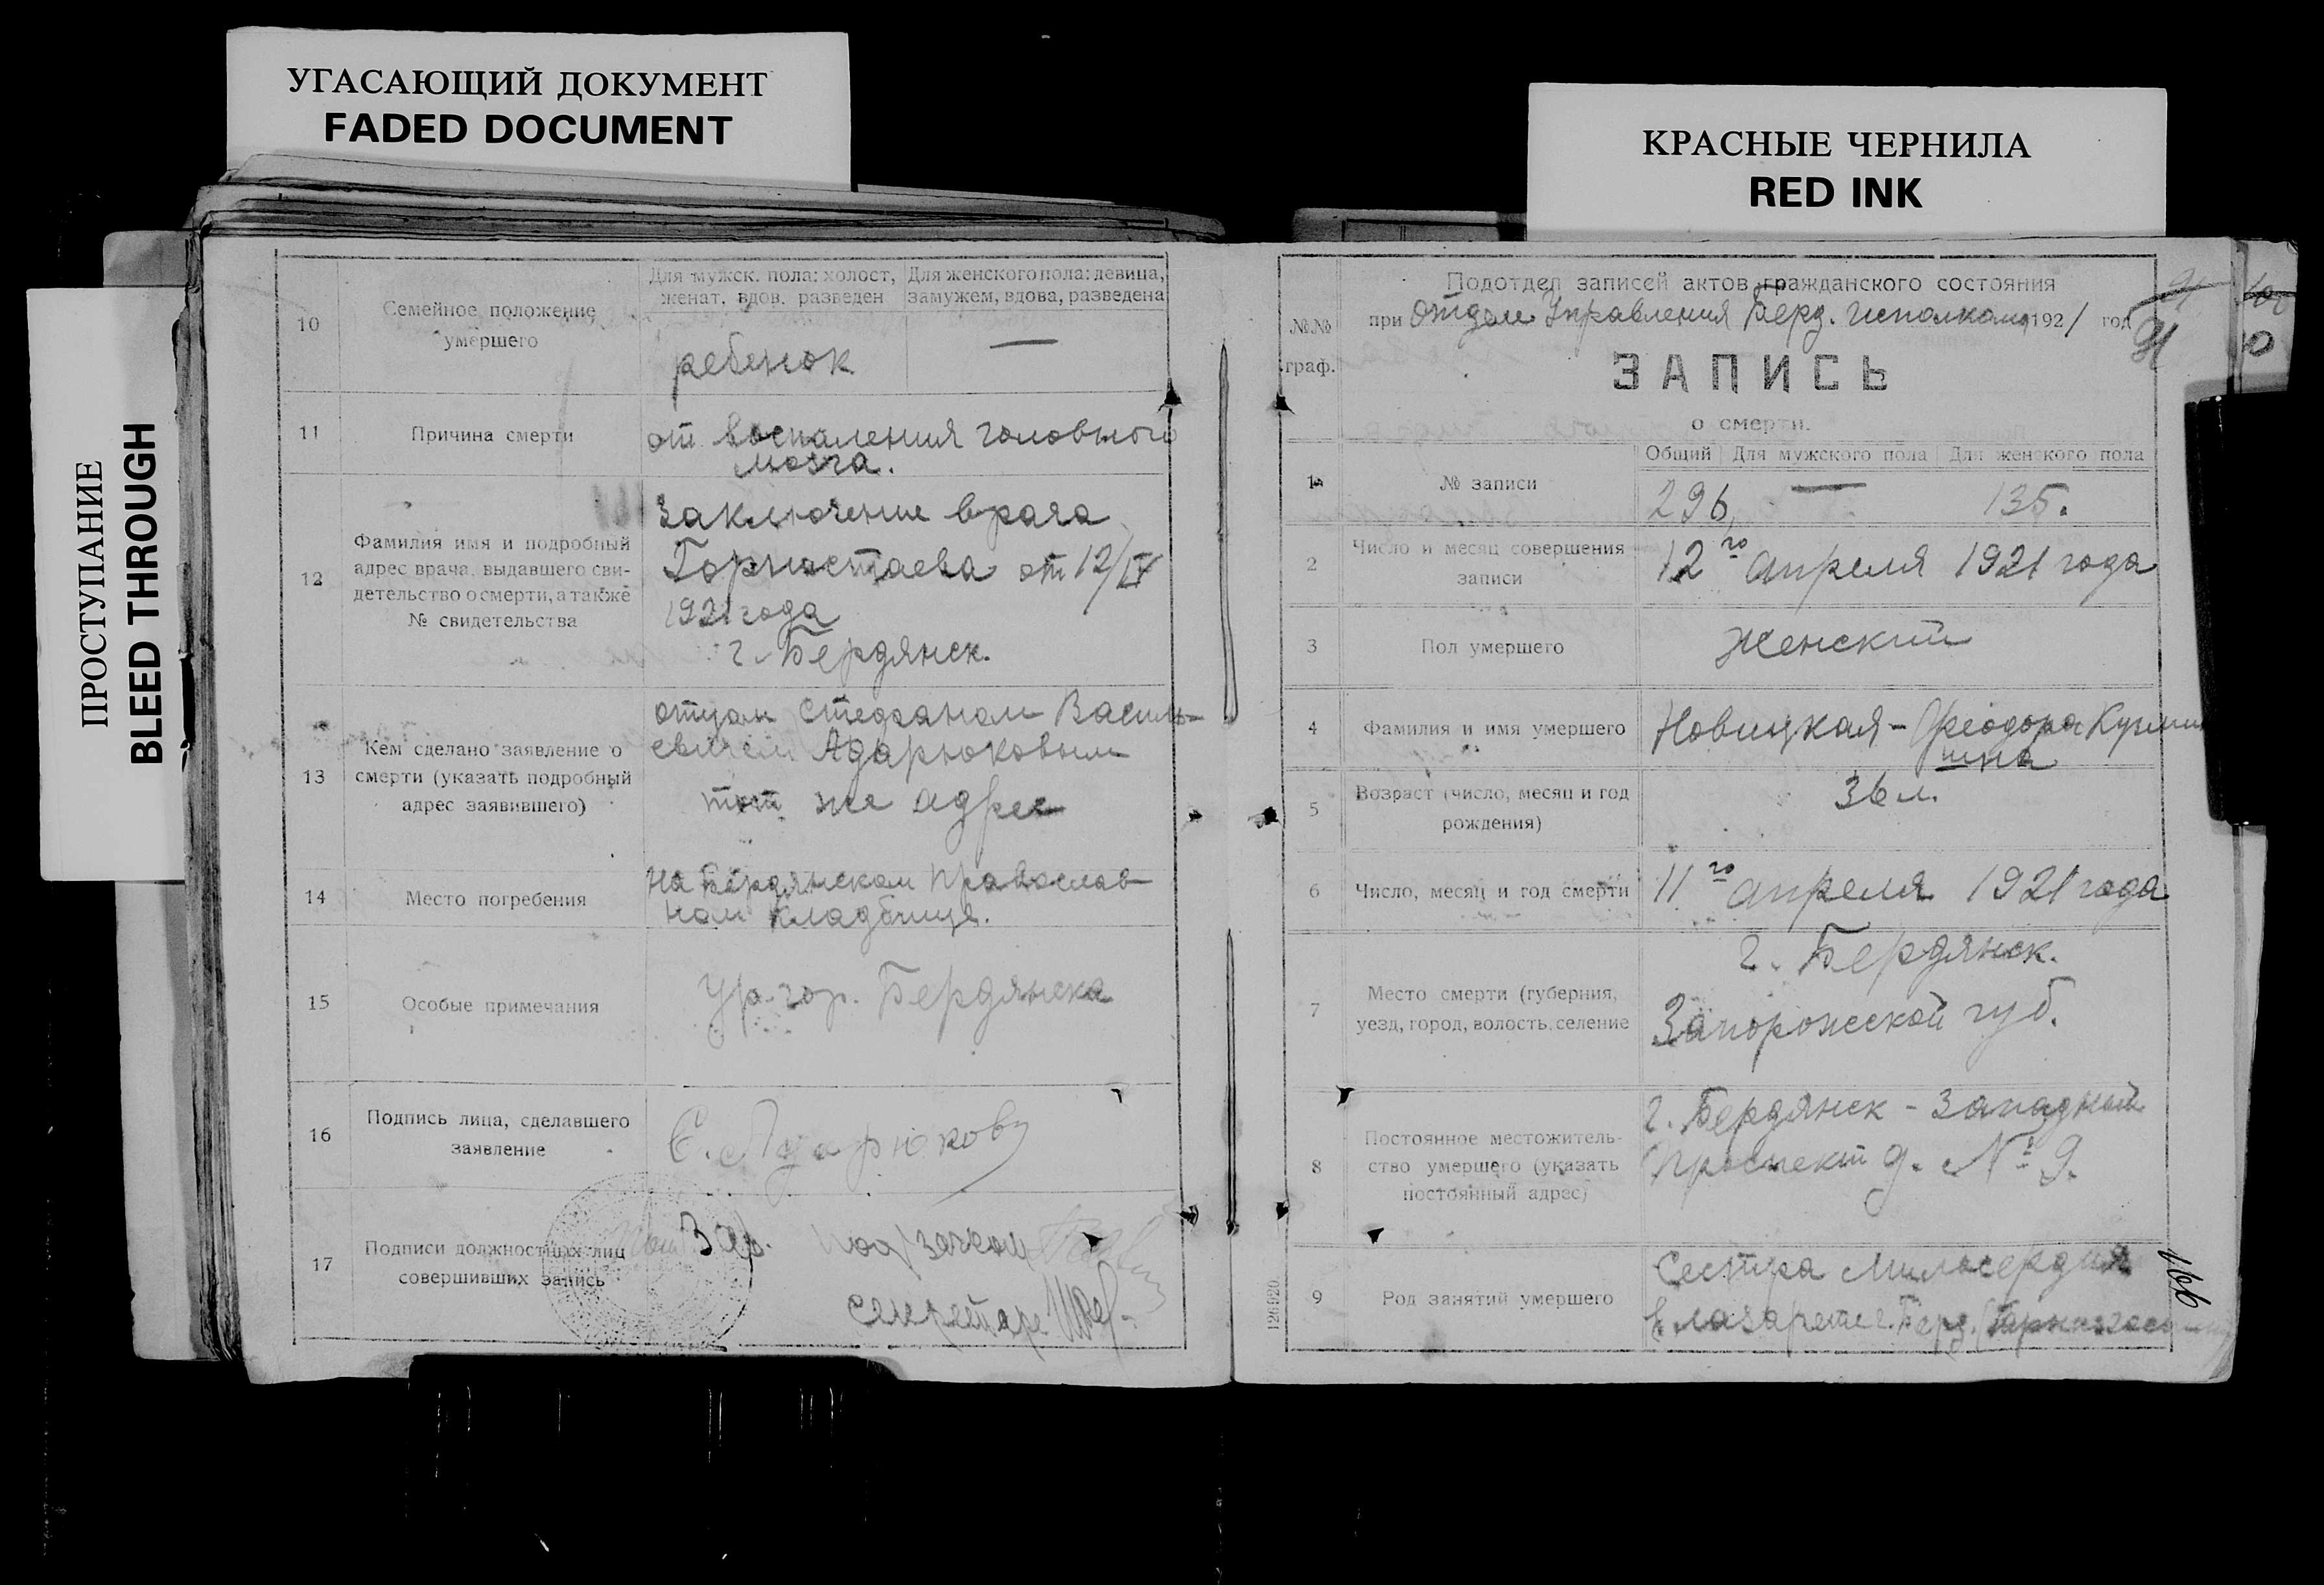 УГАСАЮЩИЙ ДОКУМЕНТ
FADED DOCUMENT
КРАСНЫЕ ЧЕРНИЛА
RED INK
ПРОСТУПАНИЕ
BLEED THROUGH
10
Семейное положение
умершего
Для мужск. пола: холост,
женат, вдов, разведен
Для женского пола: девица,
замужем, вдова, разведена
ребенок
—
11
Причина смерти
от воспаления головного
мозга.
12
Фамилия имя и подробный
адрес врача, выдавшего сви-
детельство о смерти, а также
№ свидетельства
Заключение врача
Горностаева от 12/IV
1921 года
г. Бердянск.
13
Кем сделано заявление о
смерти (указать подробный
адрес заявившего)
отцом Стефаном Василь-
евичем Адарюковым
тот же адрес
14
Место погребения
На Бердянском православ
ном кладбище.
15
Особые примечания
Ур. гор. Бердянска
16
Подпись лица, сделавшего
заявление
С. Адарюков
17
Подписи должностных лиц
совершивших запись
Зав.
секретарь
№№
граф.
Подотдел записей актов гражданского состояния
при Отделе Управления Берд. исполкома 1921 год
91
ЗАПИСЬ
о смерти.
1
№ записи
Общий
Для мужского пола
Для женского пола
296
—
135.
2
Число и месяц совершения
записи
12го апреля 1921 года
3
Пол умершего
Женский
4
Фамилия и имя умершего
Новицкая - Феодора Кузьми
нишна
5
Возраст (число, месяц и год
рождения)
36 л.
6
Число, месяц и год смерти
11го апреля 1921 года
7
Место смерти (губерния,
уезд, город, волость, селение
г. Бердянск.
Запорожской губ.
8
Постоянное местожитель-
ство умершего (указать
постоянный адрес)
г. Бердянск - Западный
проспект д. № 9.
9
Род занятий умершего
Сестра милосердия
в лазарете г. Берд.
126920
166